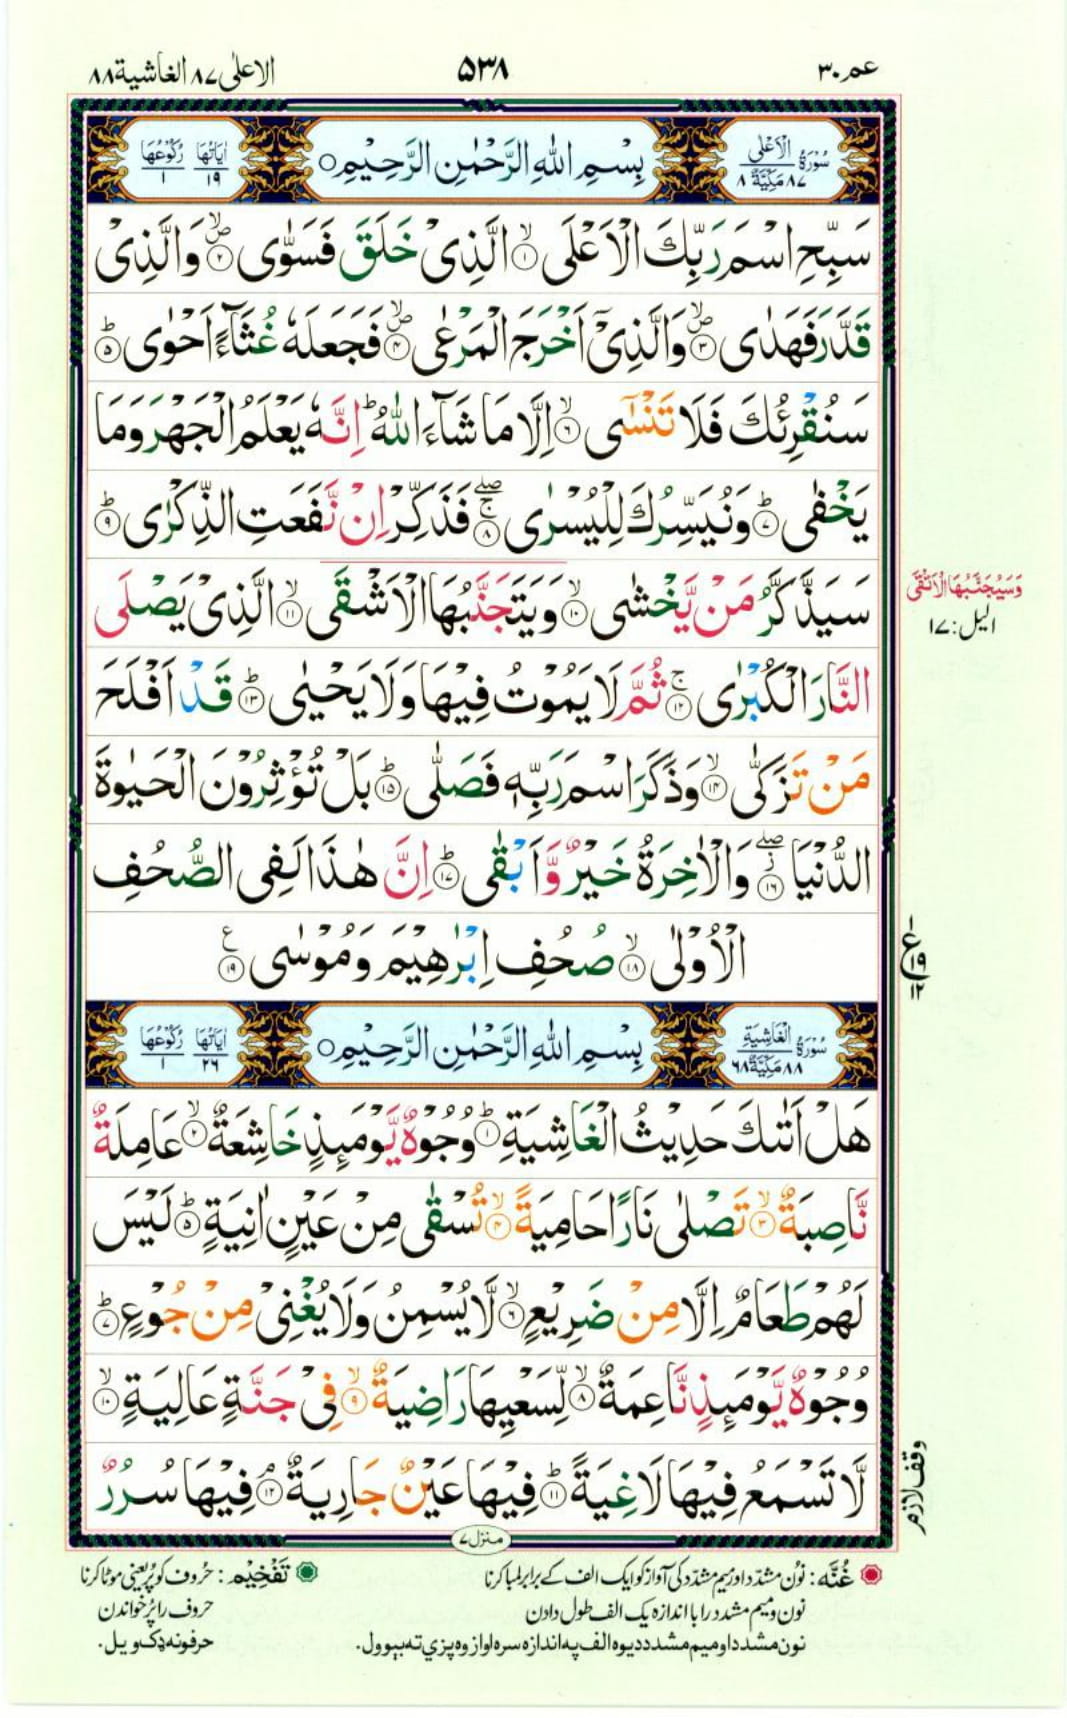 عم ٣٠
۵۳۸
الاعلىٰ ٨٧ الغاشية ٨٨
سُوْرَةُ الْاَعْلٰى ٨٧ مَكِّيَّةٌ ٨
بِسْمِ اللهِ الرَّحْمٰنِ الرَّحِيْمِ○
اٰيَاتُهَا ١٩ رُكُوْعُهَا ١
سَبِّحِ اسْمَ رَبِّكَ الْاَعْلَى ۙ﴿١﴾ الَّذِىْ خَلَقَ فَسَوّٰى ۙ﴿٢﴾ وَالَّذِىْ
قَدَّرَ فَهَدٰى ۙ﴿٣﴾ وَالَّذِىْۤ اَخْرَجَ الْمَرْعٰى ۙ﴿٤﴾ فَجَعَلَهٗ غُثَآءً اَحْوٰى ؕ﴿٥﴾
سَنُقْرِئُكَ فَلَا تَنْسٰٓى ۙ﴿٦﴾ اِلَّا مَا شَآءَ اللهُ ؕ اِنَّهٗ يَعْلَمُ الْجَهْرَ وَمَا
يَخْفٰى ؕ﴿٧﴾ وَنُيَسِّرُكَ لِلْيُسْرٰى ۚۖ﴿٨﴾ فَذَكِّرْ اِنْ نَّفَعَتِ الذِّكْرٰى ؕ﴿٩﴾
سَيَذَّكَّرُ مَنْ يَّخْشٰى ۙ﴿١٠﴾ وَيَتَجَنَّبُهَا الْاَشْقَى ۙ﴿١١﴾ الَّذِىْ يَصْلَى
وَسَيُجَنَّبُهَا الْاَتْقَى
اليل: ١٧
النَّارَ الْكُبْرٰى ۚ﴿١٢﴾ ثُمَّ لَا يَمُوْتُ فِيْهَا وَلَا يَحْيٰى ؕ﴿١٣﴾ قَدْ اَفْلَحَ
مَنْ تَزَكّٰى ۙ﴿١٤﴾ وَذَكَرَ اسْمَ رَبِّهٖ فَصَلّٰى ؕ﴿١٥﴾ بَلْ تُؤْثِرُوْنَ الْحَيٰوةَ
الدُّنْيَا ۖ﴿١٦﴾ وَالْاٰخِرَةُ خَيْرٌ وَّاَبْقٰى ؕ﴿١٧﴾ اِنَّ هٰذَا لَفِى الصُّحُفِ
الْاُوْلٰى ۙ﴿١٨﴾ صُحُفِ اِبْرٰهِيْمَ وَمُوْسٰى ﴿١٩﴾ ع
١
ع ١٩
١٢
سُوْرَةُ الْغَاشِيَةِ ٨٨ مَكِّيَّةٌ ٦٨
بِسْمِ اللهِ الرَّحْمٰنِ الرَّحِيْمِ○
اٰيَاتُهَا ٢٦ رُكُوْعُهَا ١
هَلْ اَتٰىكَ حَدِيْثُ الْغَاشِيَةِ ؕ﴿١﴾ وُجُوْهٌ يَّوْمَئِذٍ خَاشِعَةٌ ۙ﴿٢﴾ عَامِلَةٌ
نَّاصِبَةٌ ۙ﴿٣﴾ تَصْلٰى نَارًا حَامِيَةً ۙ﴿٤﴾ تُسْقٰى مِنْ عَيْنٍ اٰنِيَةٍ ؕ﴿٥﴾ لَيْسَ
لَهُمْ طَعَامٌ اِلَّا مِنْ ضَرِيْعٍ ۙ﴿٦﴾ لَّا يُسْمِنُ وَلَا يُغْنِىْ مِنْ جُوْعٍ ؕ﴿٧﴾
وُجُوْهٌ يَّوْمَئِذٍ نَّاعِمَةٌ ۙ﴿٨﴾ لِّسَعْيِهَا رَاضِيَةٌ ۙ﴿٩﴾ فِىْ جَنَّةٍ عَالِيَةٍ ۙ﴿١٠﴾
لَّا تَسْمَعُ فِيْهَا لَاغِيَةً ؕ﴿١١﴾ فِيْهَا عَيْنٌ جَارِيَةٌ ۘ﴿١٢﴾ فِيْهَا سُرُرٌ
وقف لازم
منزل ٧
غُنَّه: نوُن مشدّد اور میم مشدّد کی آواز کو ایک الف کے برابر لمبا کرنا
نون و میم مشدد را با اندازه یک الف طول دادن
نون مشدد او میم مشدد دیوه الف په اندازه سره اواز وه پزې ته بېوول.
تَفْخِيْم: حُروف کو پُر یعنی موٹا کرنا
حروف را پُر خواندن
حرفونه ډک ویل.